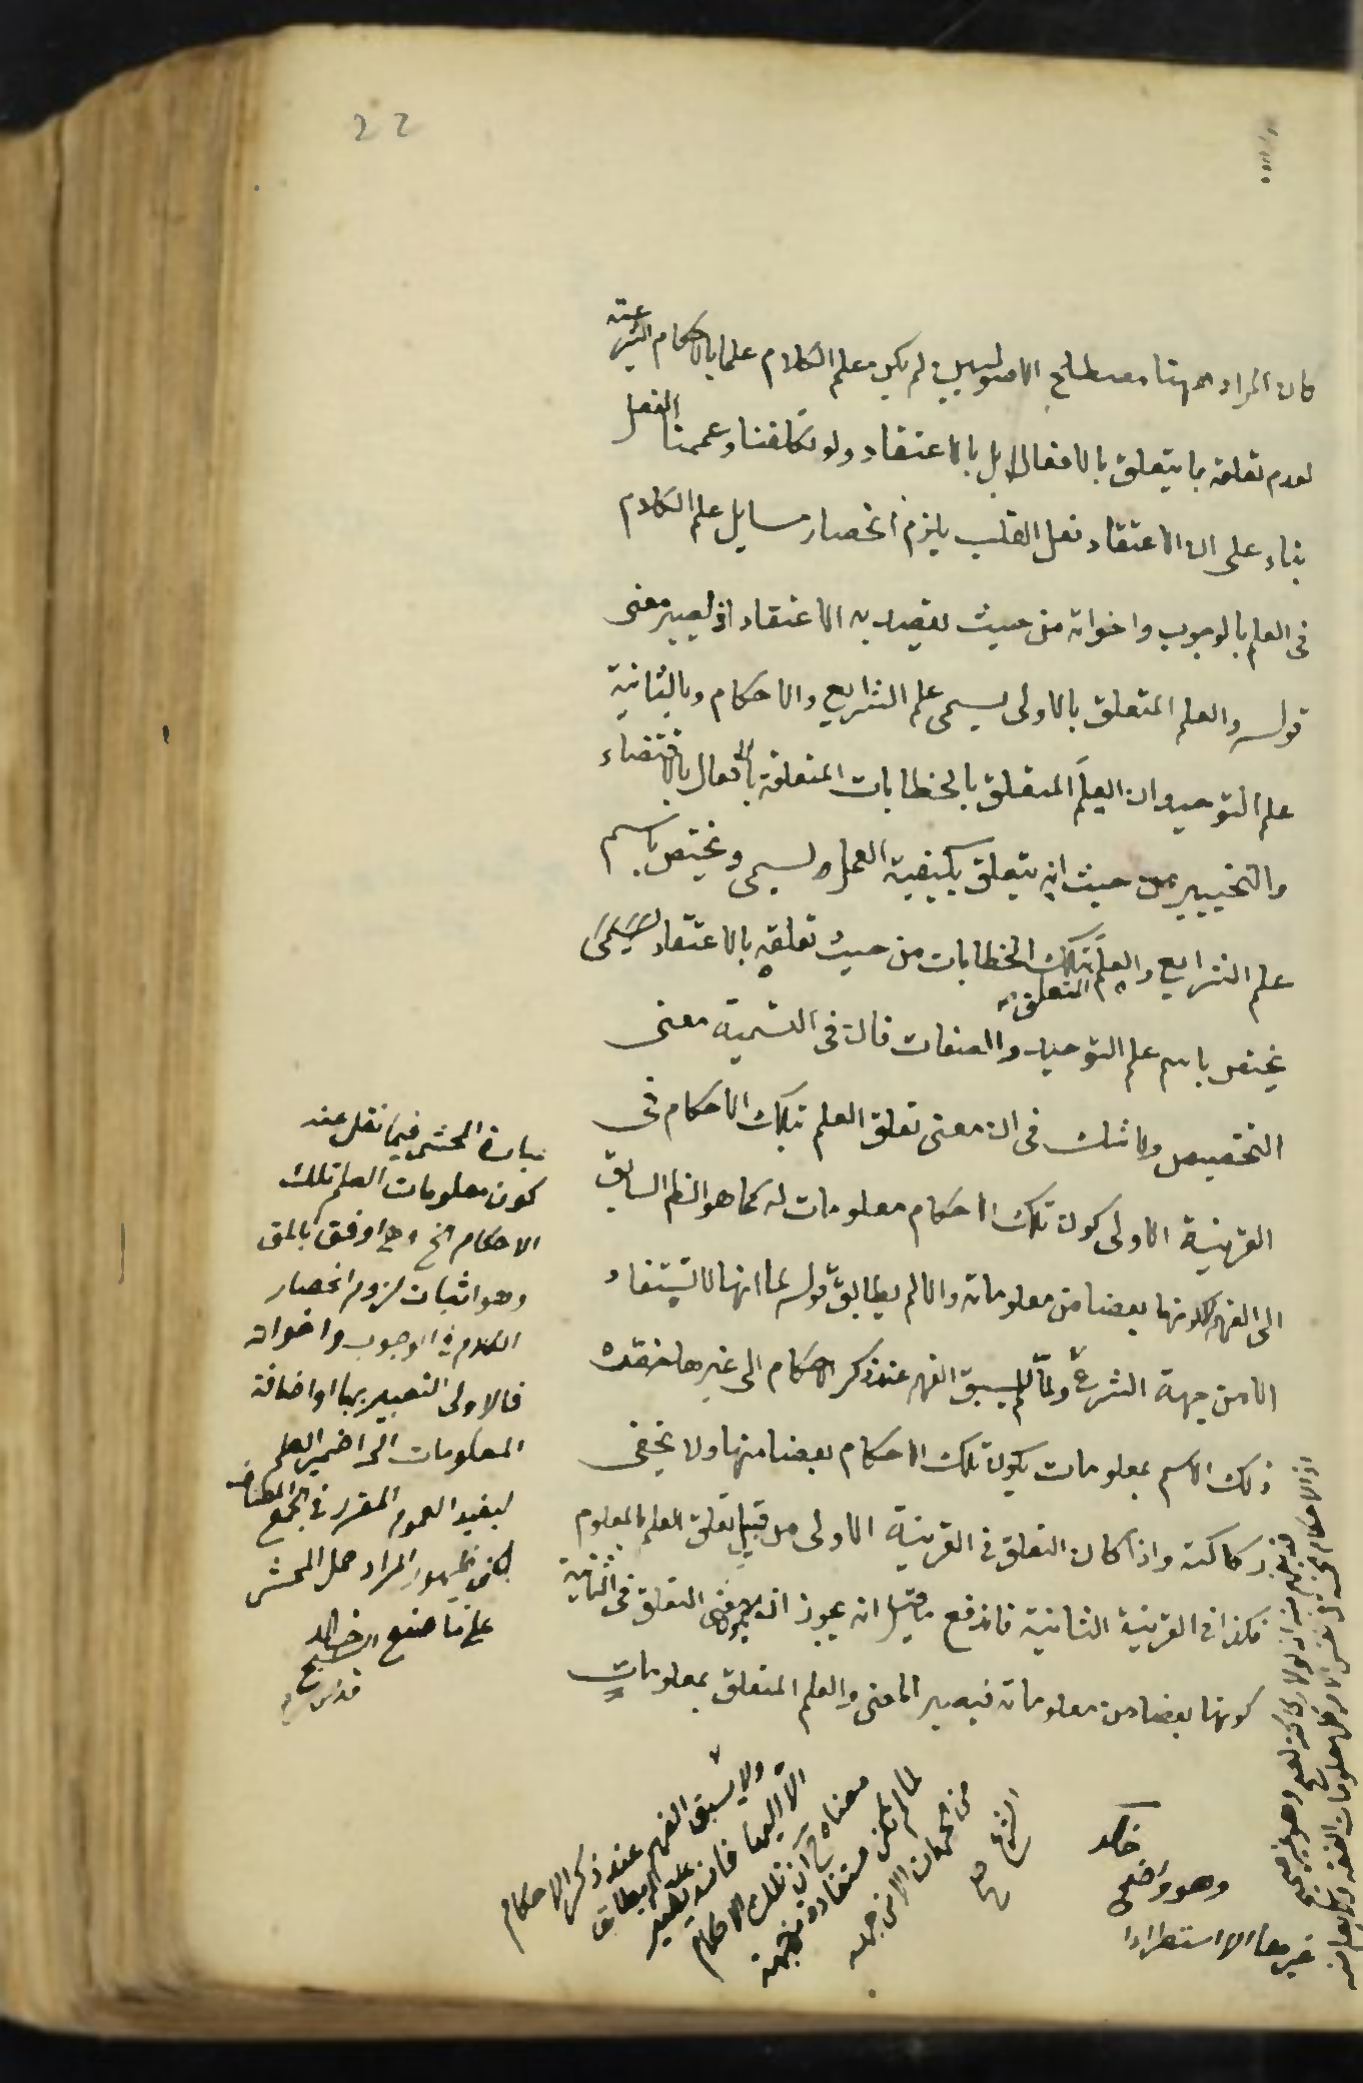 22
كان المراد ههنا مصطلح الاصوليين لم يكن علم الكلام علما بالاحكام الشرعية
لعدم تعلقه بما يتعلق بالافعال بل بالاعتقاد ولو تكلفنا وعممنا الفعل
بناء على ان الاعتقاد فعل القلب يلزم انحصار مسايل علم الكلام
فى العلم بالوجوب واخواته من حيث يقصد به الاعتقاد اذ يصير معنى
قوله والعلم المتعلق بالاولى يسمى علم الشرايع والاحكام وبالثانية
علم التوحيد ان العلم المتعلق بالخطابات المتعلقة بالافعال بالاقتضاء
والتخيير من حيث انه يتعلق بكيفية العمل يسمى ويختص باسم
علم الشرايع والعلم المتعلق بتلك الخطابات من حيث تعلقه بالاعتقاد يسمى
يختص باسم علم التوحيد والصفات فان فى التسمية معنى
التخصيص ولا شك فى ان معنى تعلق العلم بتلك الاحكام فى
القرينة الاولى كون تلك الاحكام معلومات له كما هو الظ السابق
الى الفهم لا كونها بعضا من معلوماته والا لم يطابق قوله لما انها لا تستفاد
الا من جهة الشرع ولما لم يسبق الفهم عند ذكر الاحكام الى غيرها
ذلك الاسم بمعلومات يكون تلك الاحكام بعضا منها ولا يخفى
ركاكته واذا كان التعلق فى القرينة الاولى من قبيل تعلق العلم بالمعلوم
فكذا فى القرينة الثانية فاندفع ما قيل انه يجوز ان يكون معنى التعلق فى الثانية
كونها بعضا من معلوماته فيصير المعنى والعلم المتعلق بمعلومات
عبارة المحشى فيما نقل عنه
كون معلومات العلم تلك
الاحكام الخ وهى اوفق بالمق
وهو اثبات لزوم انحصار
الكلام فى الوجوب واخواته
فالاولى التعبير بها او اضافة
المعلومات الى ضمير العلم
ليفيد العموم المقرر فى الجمع المضاف
لكن ظهور المراد حمل المحشى
على ما صنع خالد
ولا يسبق الفهم عند ذكر الاحكام
الا اليها فانه يصير
معناه ح ان تلك الاحكام
لما لم تكن مستفادة من جهة
من الجهات الا من جهة
الشرع صح
خالد
وهو واضح
غيرها الا استطرادا